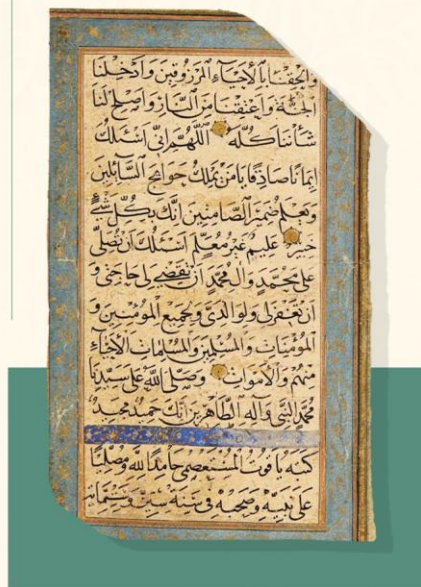 وَالحِقنَا بِالأَحيَاءِ المَرزُوقينَ وَادخِلنَا
الجَنَّةَ وَاعتِقنَا مِنَ النَّارِ وَاصلِح لَنَا
شَأنَنَا كُلَّهُ اللَّهُمَّ اِنّى اَسئَلُكَ
ايمَانًا صَادِقًا يَا مَن يَملِكُ حَوَائِجَ السَّائِلينَ
وَيَعلَمُ ضَميرَ الصَّامِتينَ اِنَّكَ بِكُلِّ شَيءٍ
خَبيرٌ عَليمٌ غَيرُ مُعَلَّمٍ اَسئَلُكَ اَن تُصَلِّىَ
عَلى مُحَمَّدٍ وَالِ مُحَمَّدٍ اَن تَقضِىَ لى حَاجَتى وَ
اَن تَغفِرَ لى وَلِوَالِدَىَّ وَلِجَميعِ المُؤمِنينَ وَ
المُؤمِنَاتِ وَالمُسلِمينَ وَالمُسلِمَاتِ الاَحيَاءِ
مِنهُم وَالاَموَاتِ وَصَلَّى اللهُ عَلى سَيِّدِنَا
مُحَمَّدٍ النَّبِىِّ وَآلِهِ الطَّاهِرينَ اِنَّكَ حَميدٌ مَجيدٌ
كتبه ياقوت المستعصمى حامدًا لله ومصليًا
على نبيه وصحبه فى سنة ستين وستمائة